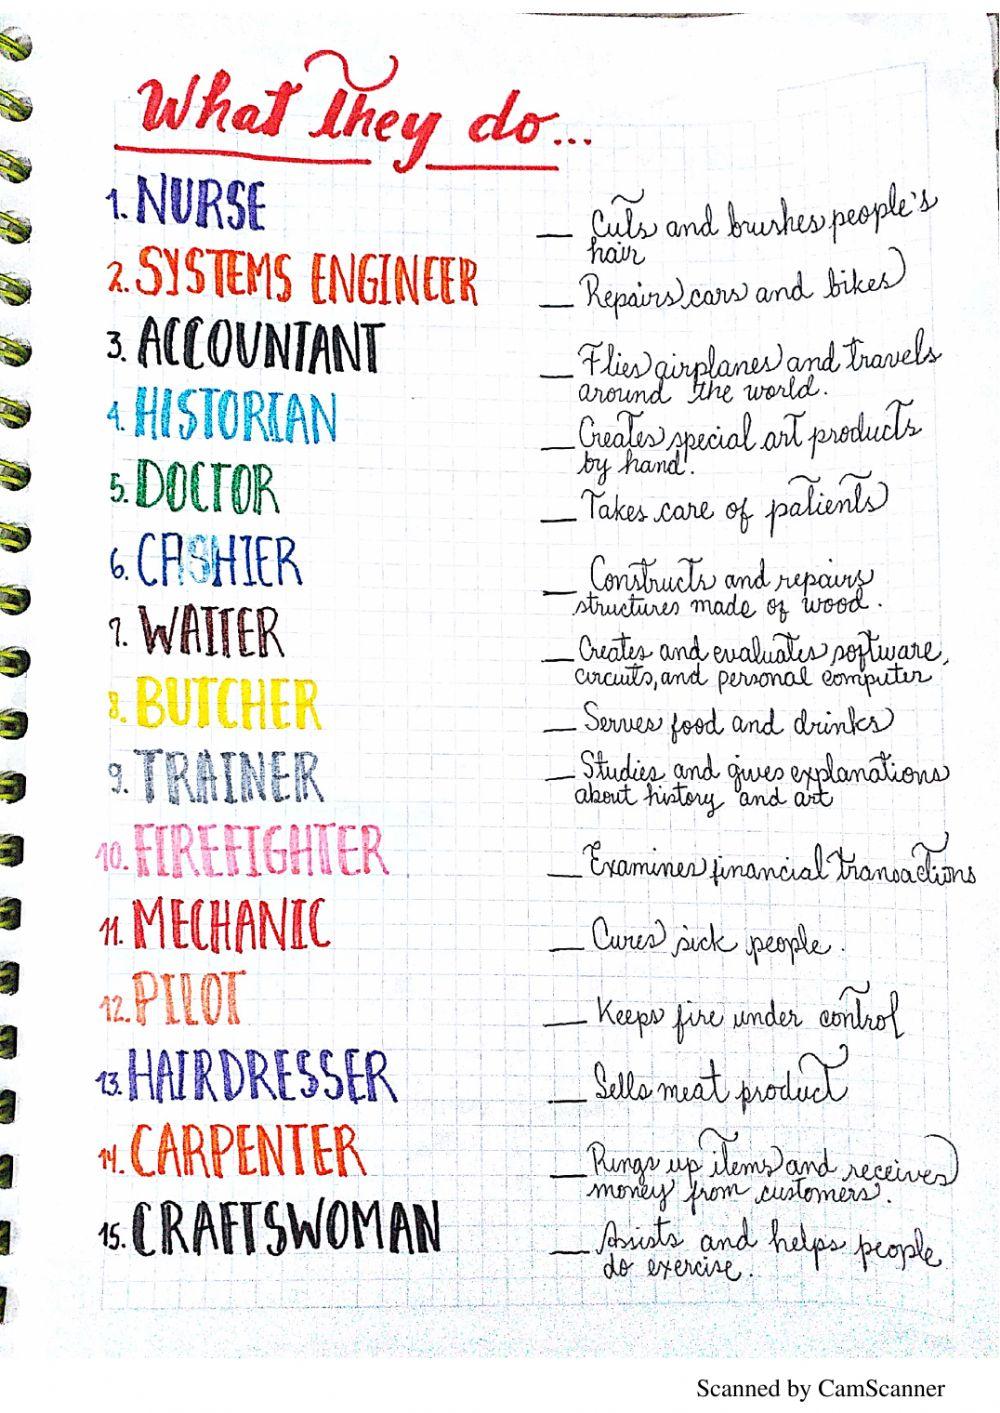 What they do...
1. NURSE
__ Cuts and brushes people's
hair
2. SYSTEMS ENGINEER
__ Repairs cars and bikes
3. ACCOUNTANT
__ Flies airplanes and travels
around the world.
4. HISTORIAN
__ Creates special art products
by hand.
5. DOCTOR
__ Takes care of patients
6. CASHIER
__ Constructs and repairs
structures made of wood.
7. WAITER
__ Creates and evaluates software,
circuits, and personal computer
8. BUTCHER
__ Serves food and drinks
9. TRAINER
__ Studies and gives explanations
about history and art
10. FIREFIGHTER
__ Examines financial transactions
11. MECHANIC
__ Cures sick people.
12. PILOT
__ Keeps fire under control
13. HAIRDRESSER
__ Sells meat product
14. CARPENTER
__ Rings up items and receives
money from customers.
15. CRAFTSWOMAN
__ Assists and helps people
do exercise.
Scanned by CamScanner